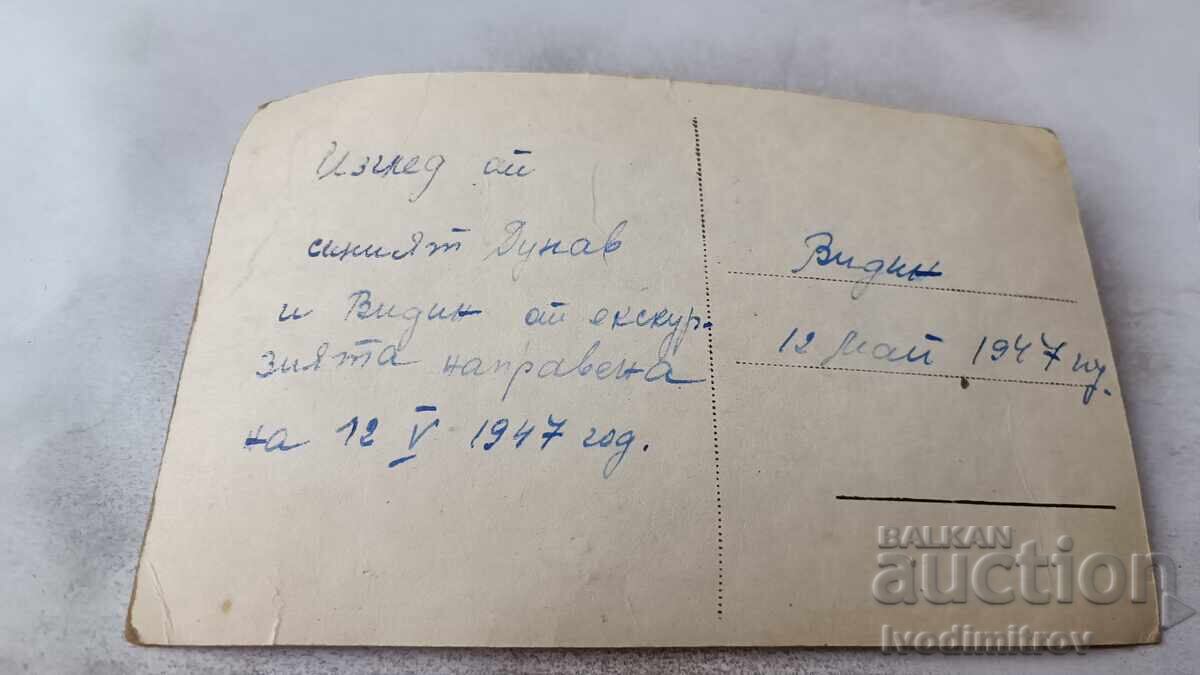 Изглед от
синият Дунав
и Видин от екскур-
зията направена
на 12 V 1947 год.
Видин
12 Май 1947 год.
BALKAN
auction
Ivodimitrov